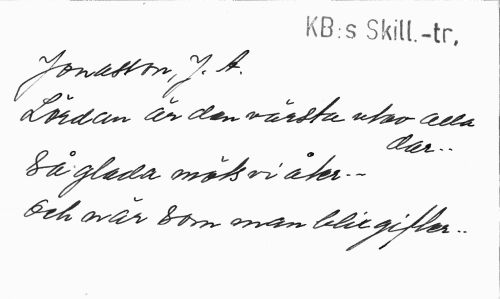 KB:s Skill.-tr.
Jonasson, J. A.
Lördan är den värsta utav alla
dar..
Så glada möts vi åter..
Och när som man blir gifter..